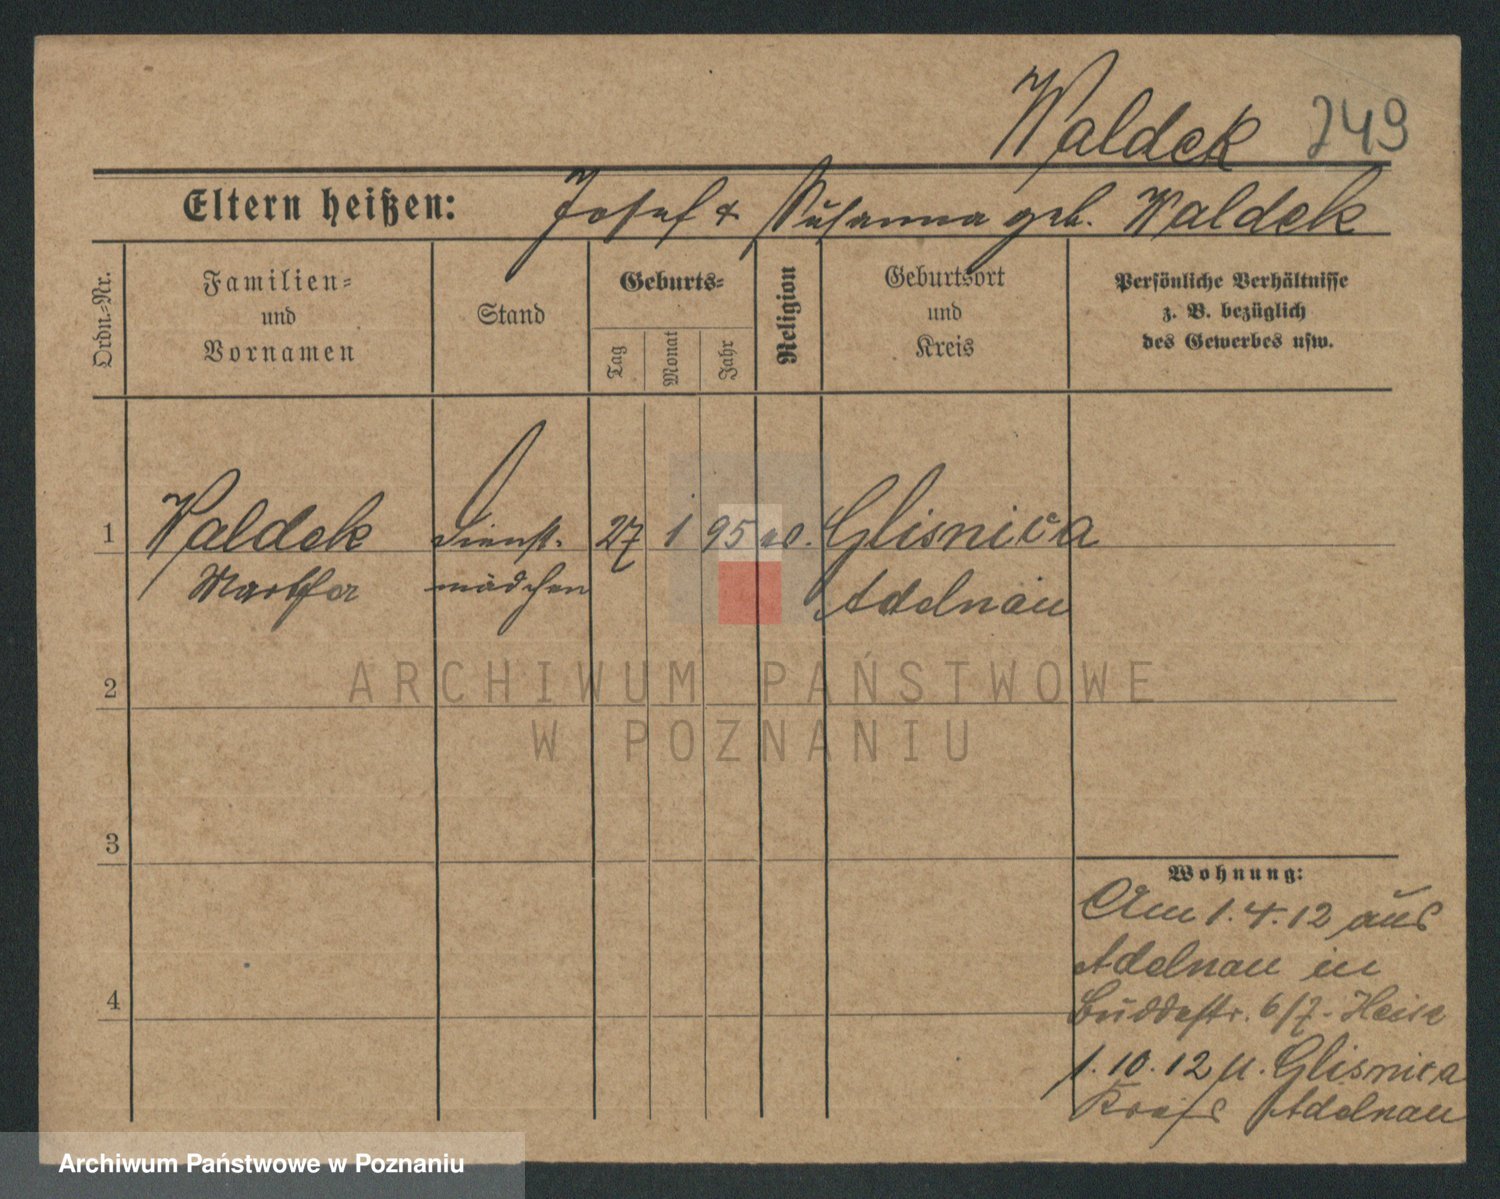 Waldek 249
Eltern heißen: Josef & Susanna geb. Waldek
Ordn=Nr.
Familien=
und
Vornamen
Stand
Geburts=
Tag
Monat
Jahr
Religion
Geburtsort
und
Kreis
Persönliche Verhältnisse
z. B. bezüglich
des Gewerbes usw.
1 Waldek Dienst- 27 1 95 ev. Glisnica
Martha mädchen Adelnau
2
3
4
Wohnung:
Am 1.4.12 aus
Adelnau in
Buddestr. 6/7.
1.10.12 n. Glisnica
Kreis Adelnau
ARCHIWUM PAŃSTWOWE
W POZNANIU
Archiwum Państwowe w Poznaniu